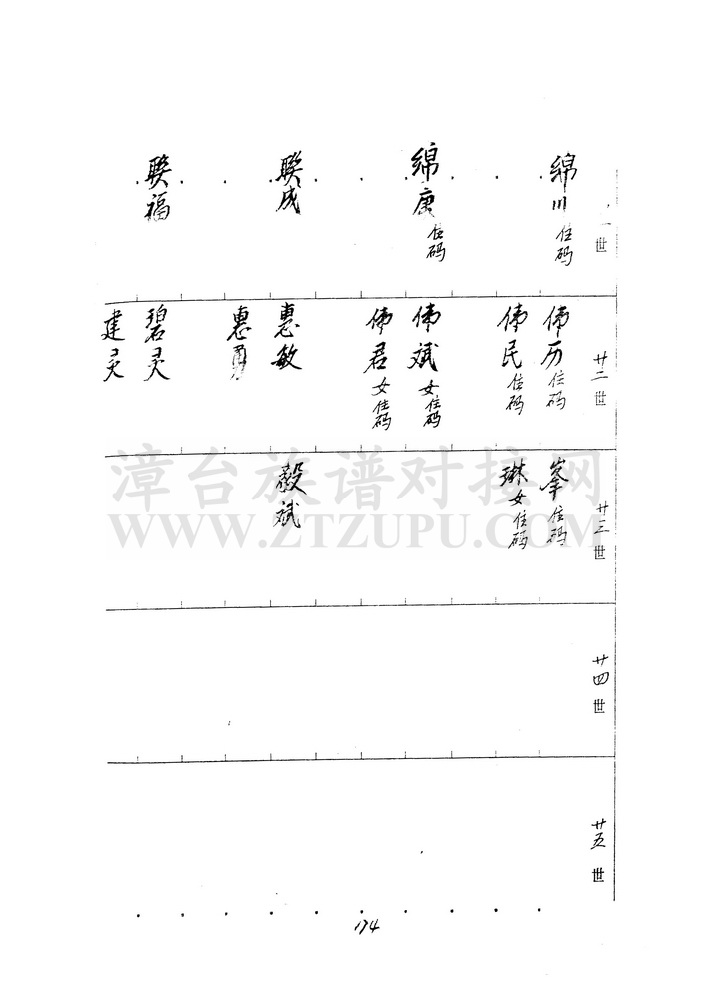 世
绵川 住码
绵康 住码
联成
联福
廿二世
伟历 住码
伟民 住码
伟斌 女 住码
伟君 女 住码
惠敏
惠勇
碧灵
建灵
廿三世
峯 住码
琳 女 住码
毅斌
廿四世
廿五世
174
漳台族谱对接网
WWW.ZTZUPU.COM